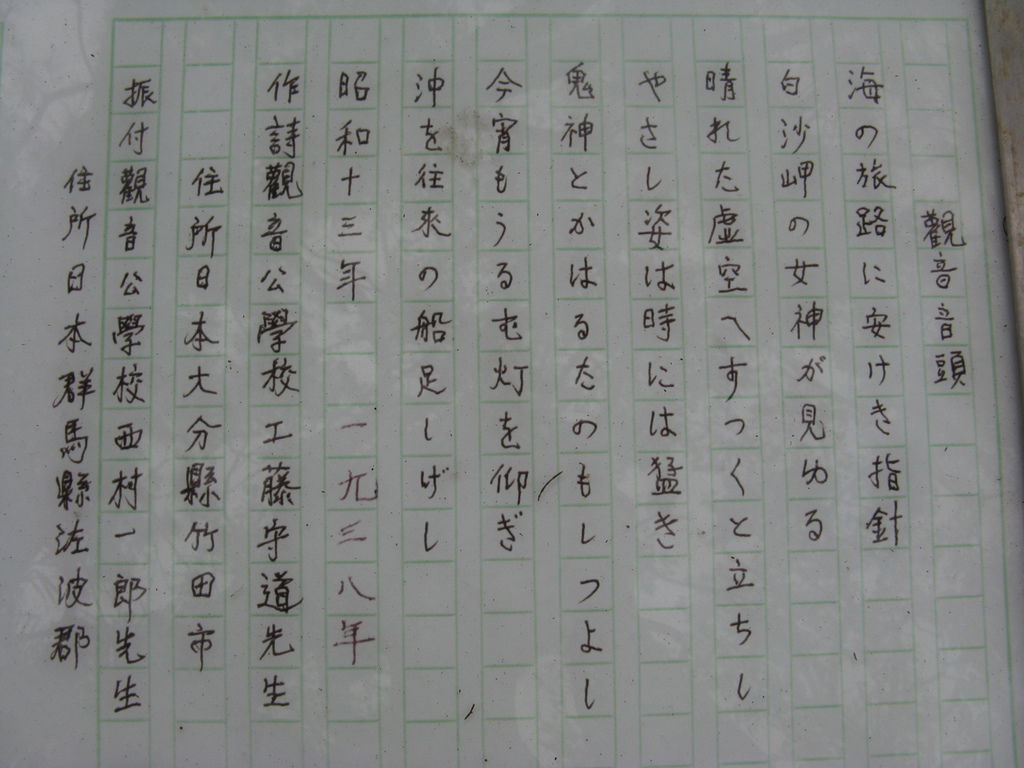 觀音音頭
海の旅路に安けき指針
白沙岬の女神が見ゆる
晴れた虚空へすっくと立ちし
やさし姿は時には猛き
鬼神とかはるたのもしつよし
今宵もうるむ灯を仰ぎ
沖を往来の船足しげし
昭和十三年 一九三八年
作詩觀音公學校工藤守道先生
住所日本大分縣竹田市
振付觀音公學校西村一郎先生
住所日本群馬縣佐波郡